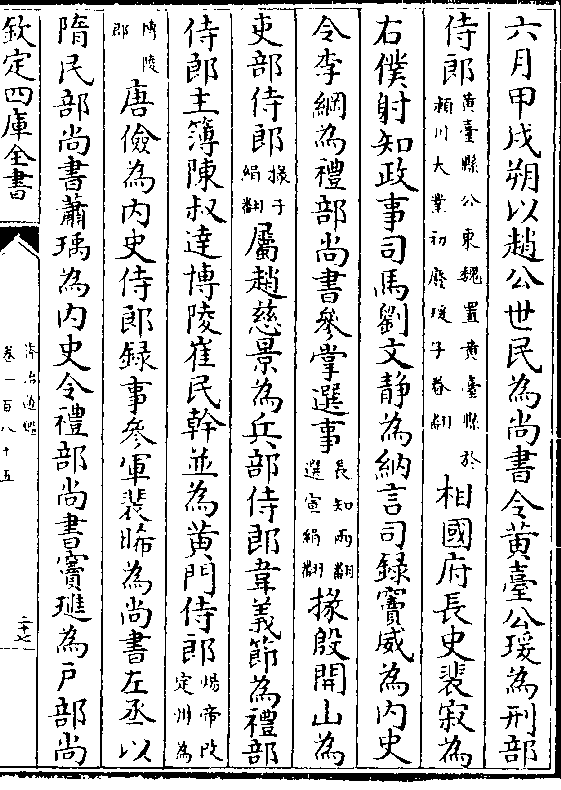 六月甲戌朔以趙公世民為尚書令黄臺公瑗為刑部
侍郎
黄臺縣公東魏置黄臺縣於
潁川大業初廢瑗于眷翻
相國府長史裴寂為
右僕射知政事司馬劉文靜為納言司録竇威為内史
令李綱為禮部尚書參掌選事
長知兩翻
選宣絹翻
掾殷開山為
吏部侍郎
掾于
絹翻
屬趙慈景為兵部侍郎韋義節為禮部
侍郎主簿陳叔達博陵崔民幹並為黄門侍郎
煬帝改
定州為
博陵
郡
唐儉為内史侍郎録事參軍裴晞為尚書左丞以
隋民部尚書蕭瑀為内史令禮部尚書竇璡為戶部尚
欽定四庫全書
資治通鑑
卷一百八十五
二十七